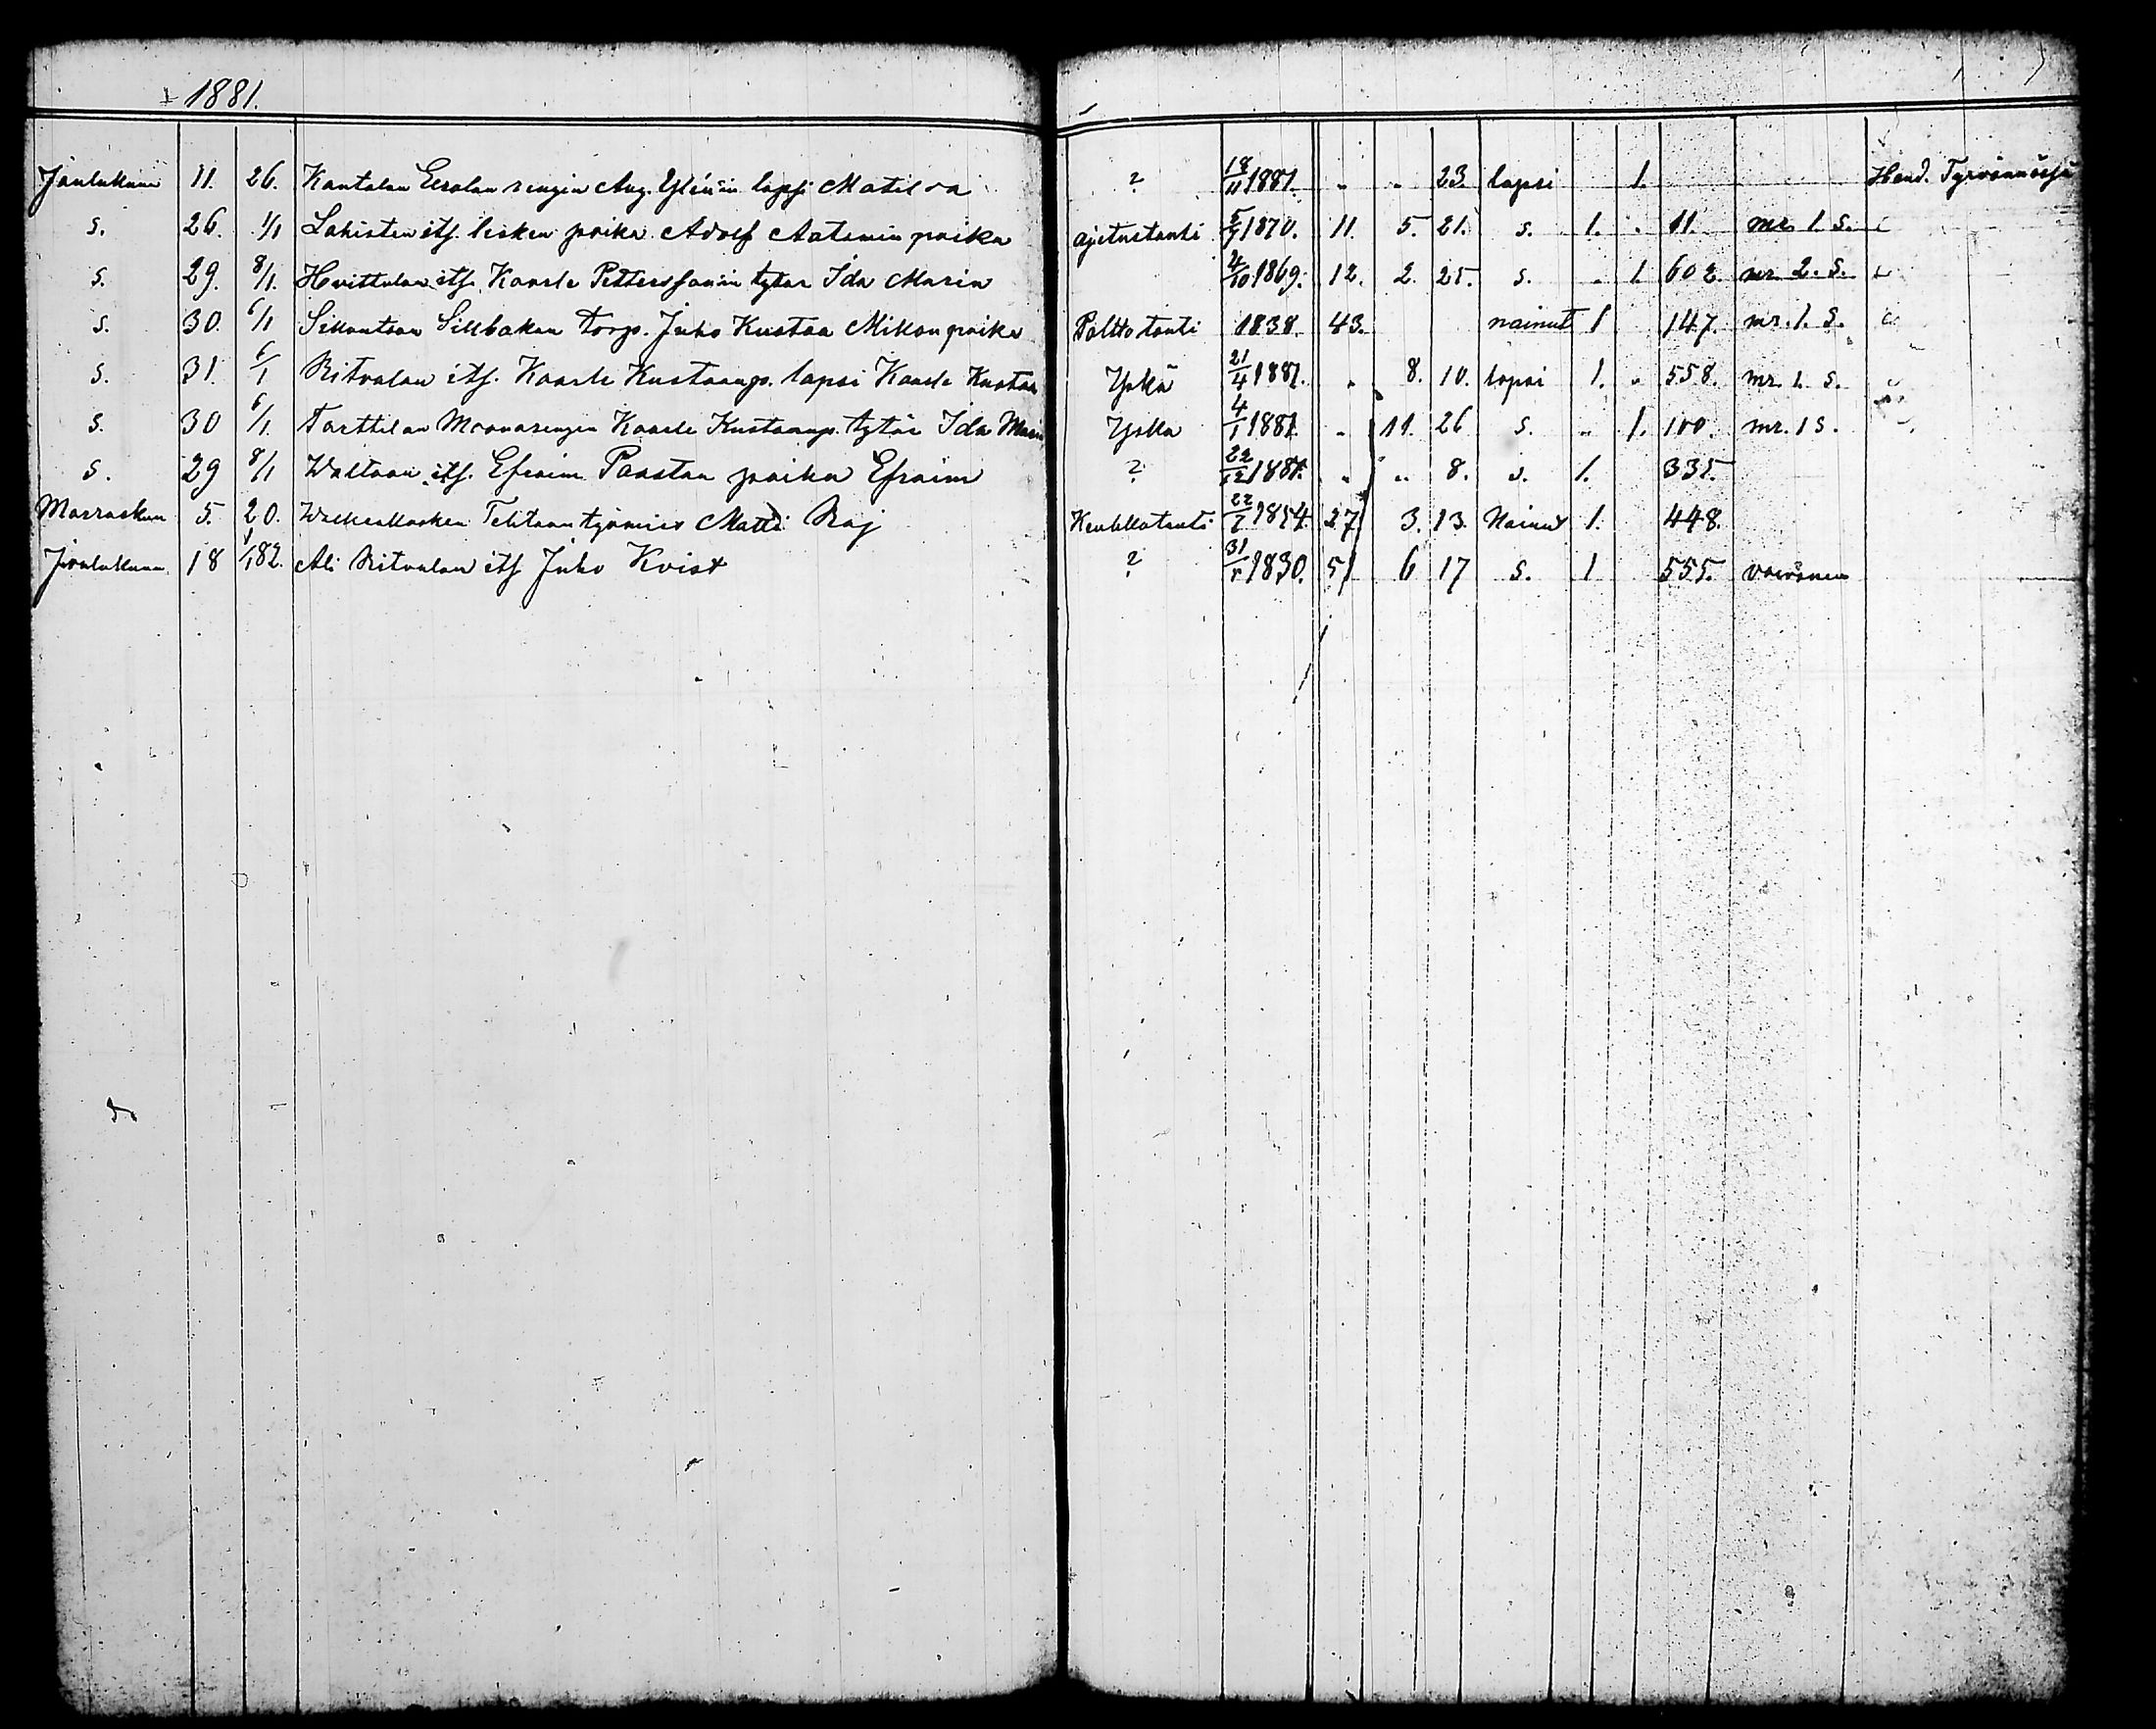 1881.
Joulukuun 11. 26. Kantalan Eerolan rengin Aug. Ylénin lapsi Matilda ? 18/11 1881. „ „ 23. lapsi 1. Haud. Tyrvännössä
s. 26. 1/1 Lahisten its. lesken poika Adolf Aatamin poika ajetustauti 5/7 1870. 11. 5. 21. s. 1. „ 11. mr. 1. s.
s. 29. 8/1. Hvittulan its. Kaarle Pettersson'in tytär Ida Maria 4/10 1869. 12. 2. 25. s. „ 1. 602. mr. 2. s.
s. 30. 6/1 Sillbakan torp. Juho Kustaa Mikonpoika Polttotauti 1838. 43. nainut 1 147. mr. 1. s.
s. 31. 6/1 Ritvalan its. Kaarle Kustaanp. lapsi Kaarle Kustaa Yskä 21/4 1881. „ 8. 10. lapsi 1. „ 558. mr. 1. s.
s. 30 6/1. Tarttilan Kaarle Kustaanp. tytär Ida Maria Yskä 4/1 1881 „ 11. 26 s. „ 1. 100. mr. 1 s.
s. 29 8/1 its. Efraim Paastan poika Efraim ? 22/12 1881. „ „ 8. s. 1. 335.
Marraskuu 5. 20. työmies Matti Raj Keuhkotauti 22/7 1854. 27 3. 13. Nainut 1. 448.
Joulukuun 18 1/1 82. Ali Ritvalan its Juho Kvist ? 31/5 1830. 51 6 17 s. 1 555. vaivainen